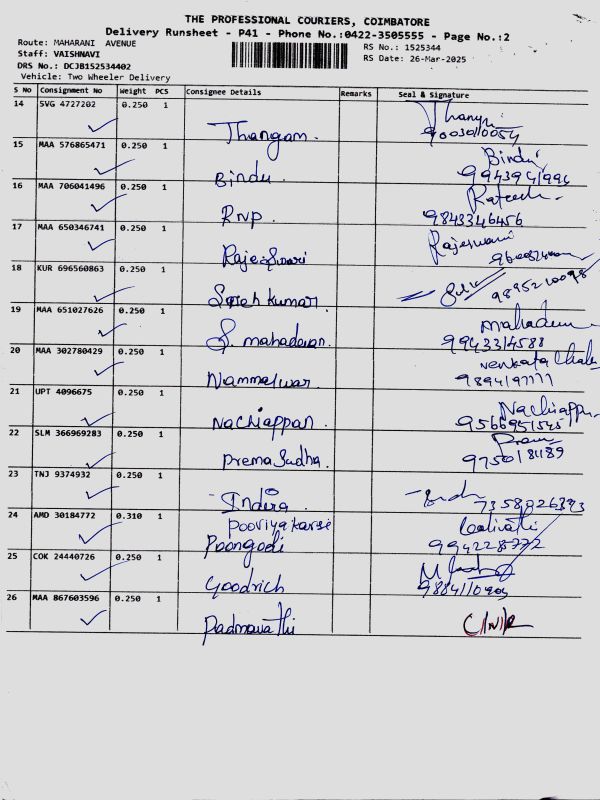 THE PROFESSIONAL COURIERS, COIMBATORE
Delivery Runsheet - P41 - Phone No.:0422-3505555 - Page No.:2
Route: MAHARANI AVENUE
RS No.: 1525344
Staff: VAISHNAVI
RS Date: 26-Mar-2025
DRS No.: DCJB152534402
Vehicle: Two Wheeler Delivery
S No Consignment No Weight PCS Consignee Details Remarks Seal & Signature
14 SVG 4727202 0.250 1 Thangam.
9003010054
15 MAA 576865471 0.250 1 Bindu Bindu
16 MAA 706041496 0.250 1 RNP
9843346456
17 MAA 650346741 0.250 1 Rajeswari Rajeswari
18 KUR 696560863 0.250 1
9895210098
19 MAA 651027626 0.250 1 S. mahadevan
9943314588
20 MAA 302780429 0.250 1 Nammalwar Venkata
21 UPT 4096675 0.250 1 Nachiappan
22 SLM 366969283 0.250 1 Prema Sudha
23 TNJ 9374932 0.250 1 Indira
7358826393
24 AMD 30184772 0.310 1
Poongodi
25 COK 24440726 0.250 1 Goodrich
26 MAA 867603596 0.250 1 Padmavathi